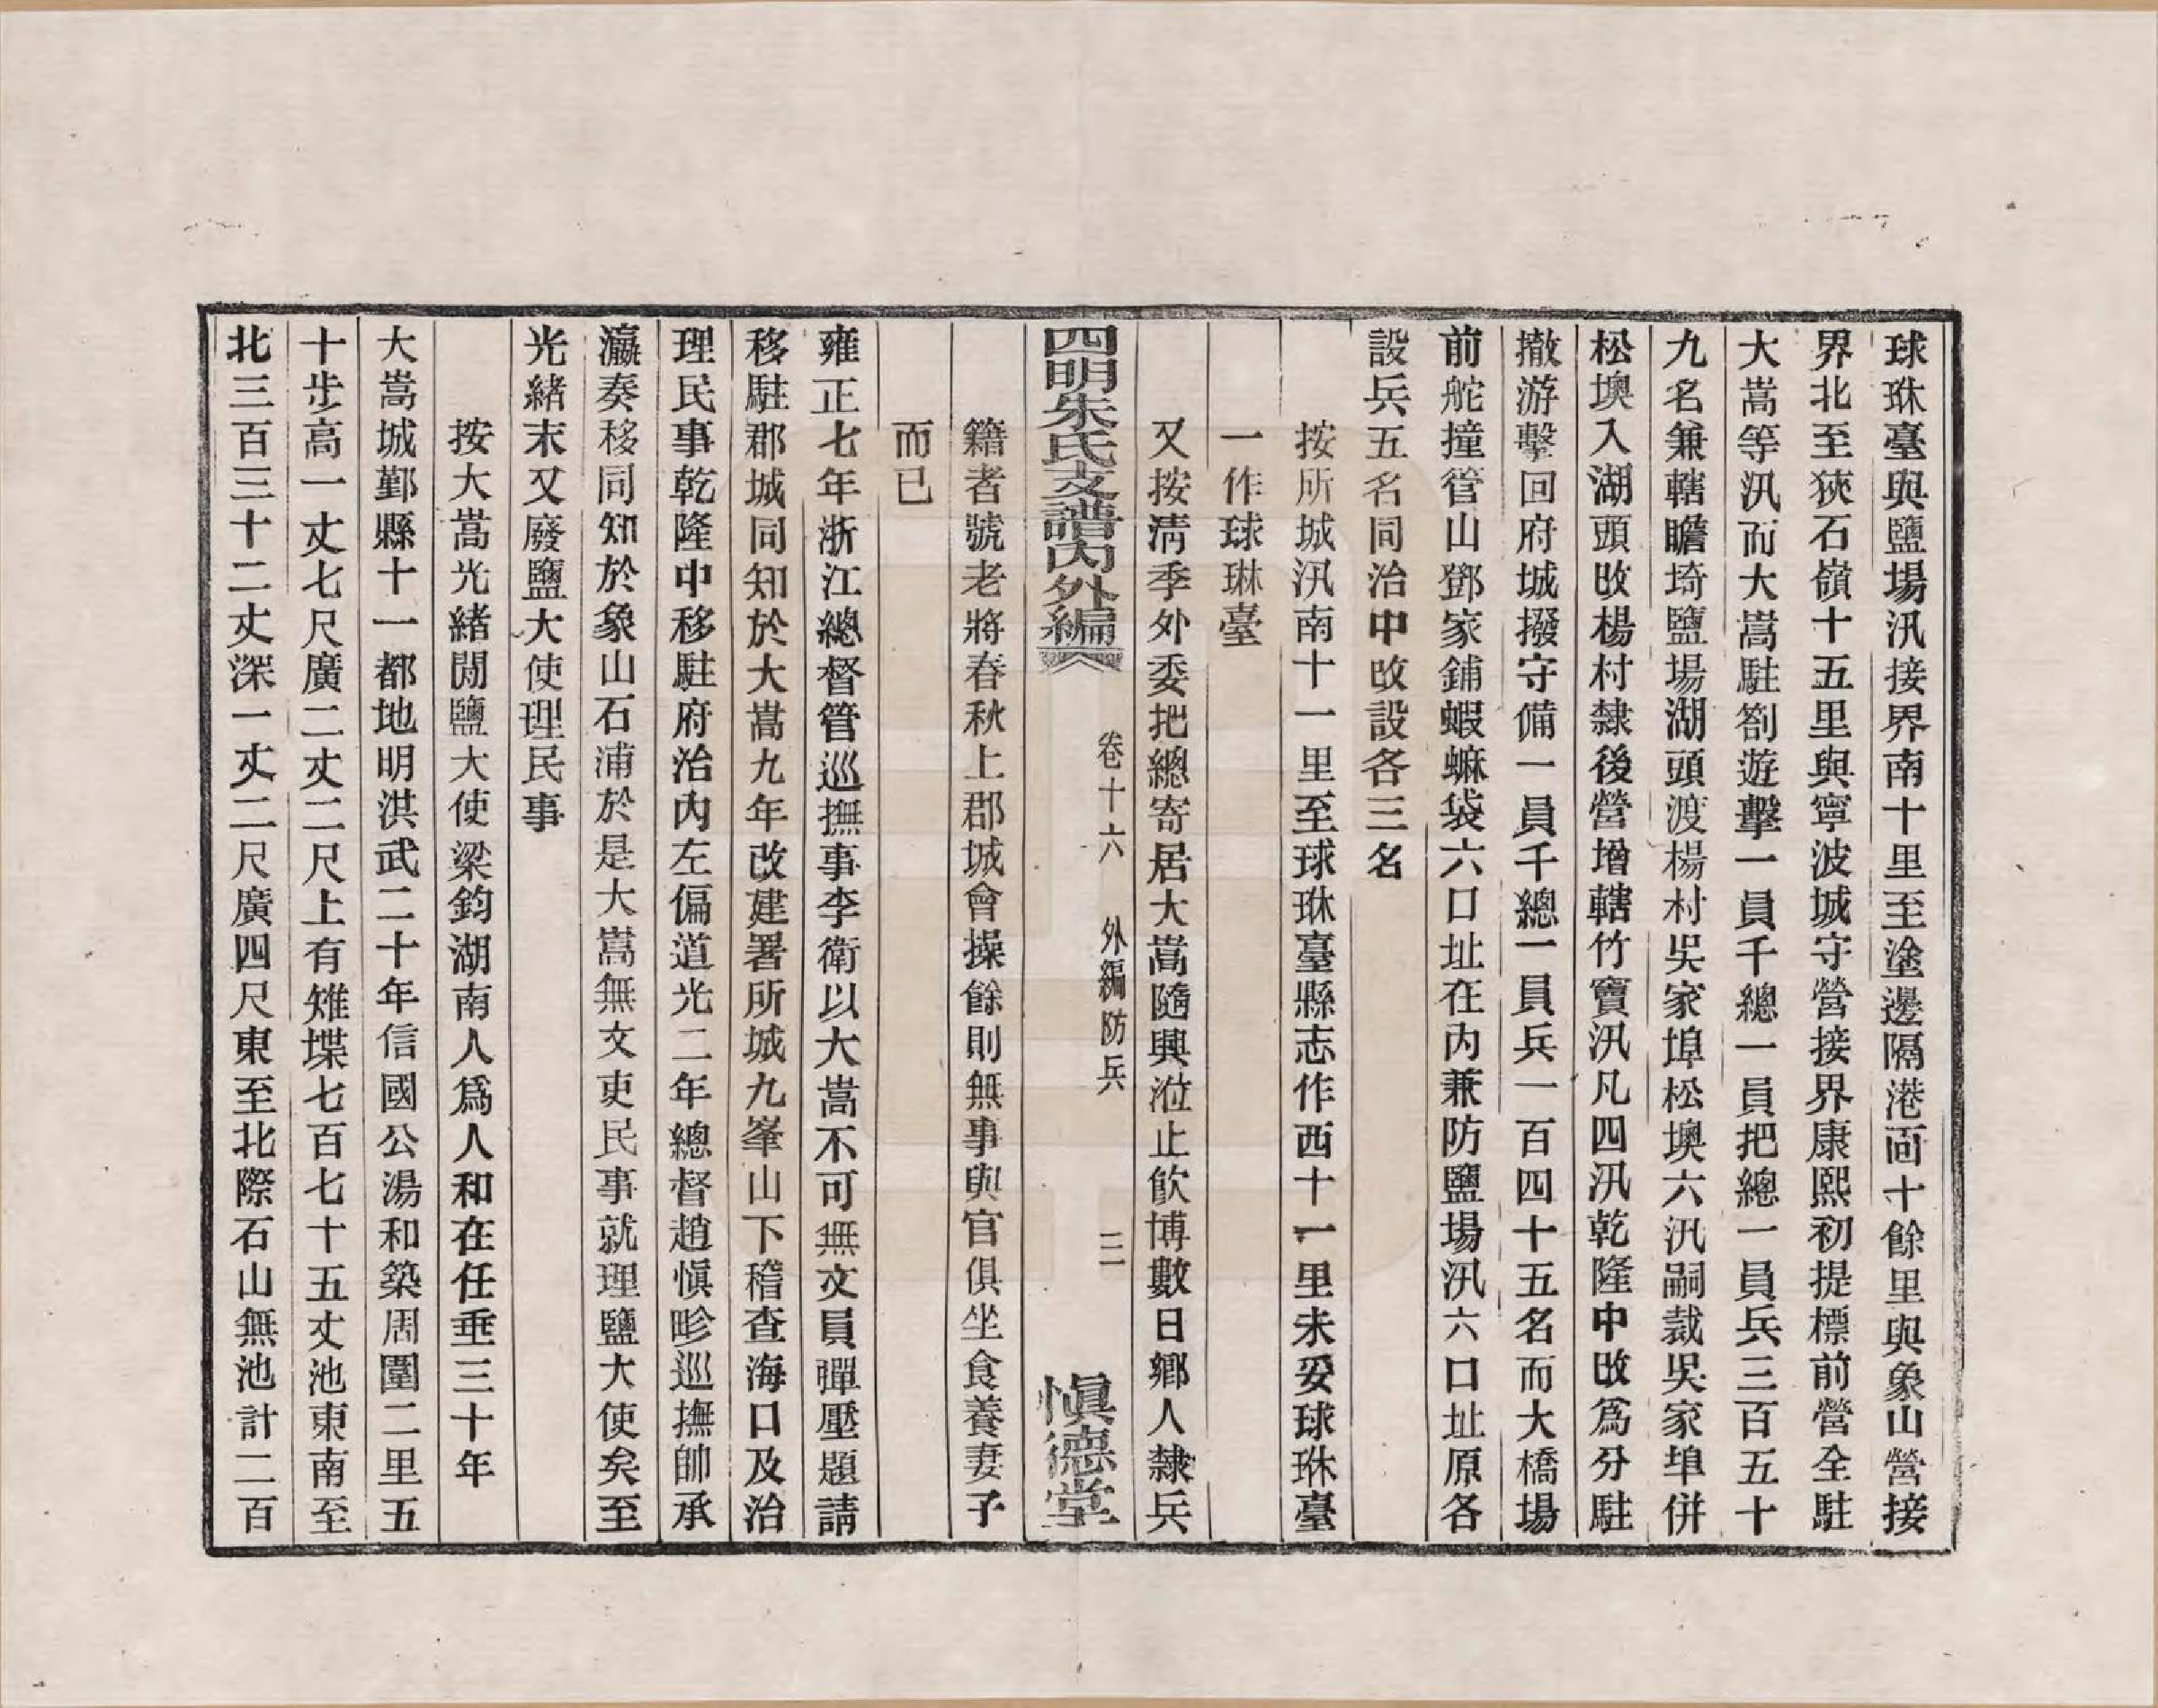 球琳臺與鹽場汛接界南十里至塗邊隔港面十餘里與象山營接
界北至狹石嶺十五里與寧波城守營接界康熙初提標前營全駐
大嵩等汛而大嵩駐劄遊擊一員千總一員把總一員兵三百五十
九名兼轄瞻埼鹽場湖頭渡楊村吳家埠松墺六汛嗣裁吳家埠併
松墺入湖頭改楊村隸後營增轄竹竇汛凡四汛乾隆中改爲分駐
撤游擊回府城撥守備一員千總一員兵一百四十五名而大橋場
前舵撞管山鄧家鋪蝦蟆袋六口址在内兼防鹽場汛六口址原各
設兵五名同治中改設各三名
按所城汛南十一里至球琳臺縣志作西十一里未妥球琳臺
一作球琳臺
又按淸季外委把總寄居大嵩隨興涖止飮博數日鄕人隸兵
四明朱氏支譜内外編
卷十六 外編 防兵
三
愼德堂
籍者號老將春秋上郡城會操餘則無事與官俱坐食養妻子
而已
雍正七年浙江總督管巡撫事李衛以大嵩不可無文員彈壓題請
移駐郡城同知於大嵩九年改建署所城九峯山下稽查海口及治
理民事乾隆中移駐府治内左偏道光二年總督趙愼畛巡撫帥承
瀛奏移同知於象山石浦於是大嵩無文吏民事就理鹽大使矣至
光緒末又廢鹽大使理民事
按大嵩光緒閒鹽大使梁鈞湖南人爲人和在任垂三十年
大嵩城鄞縣十一都地明洪武二十年信國公湯和築周圍二里五
十步高一丈七尺廣二丈二尺上有雉堞七百七十五丈池東南至
北三百三十二丈深一丈二尺廣四尺東至北際石山無池計二百